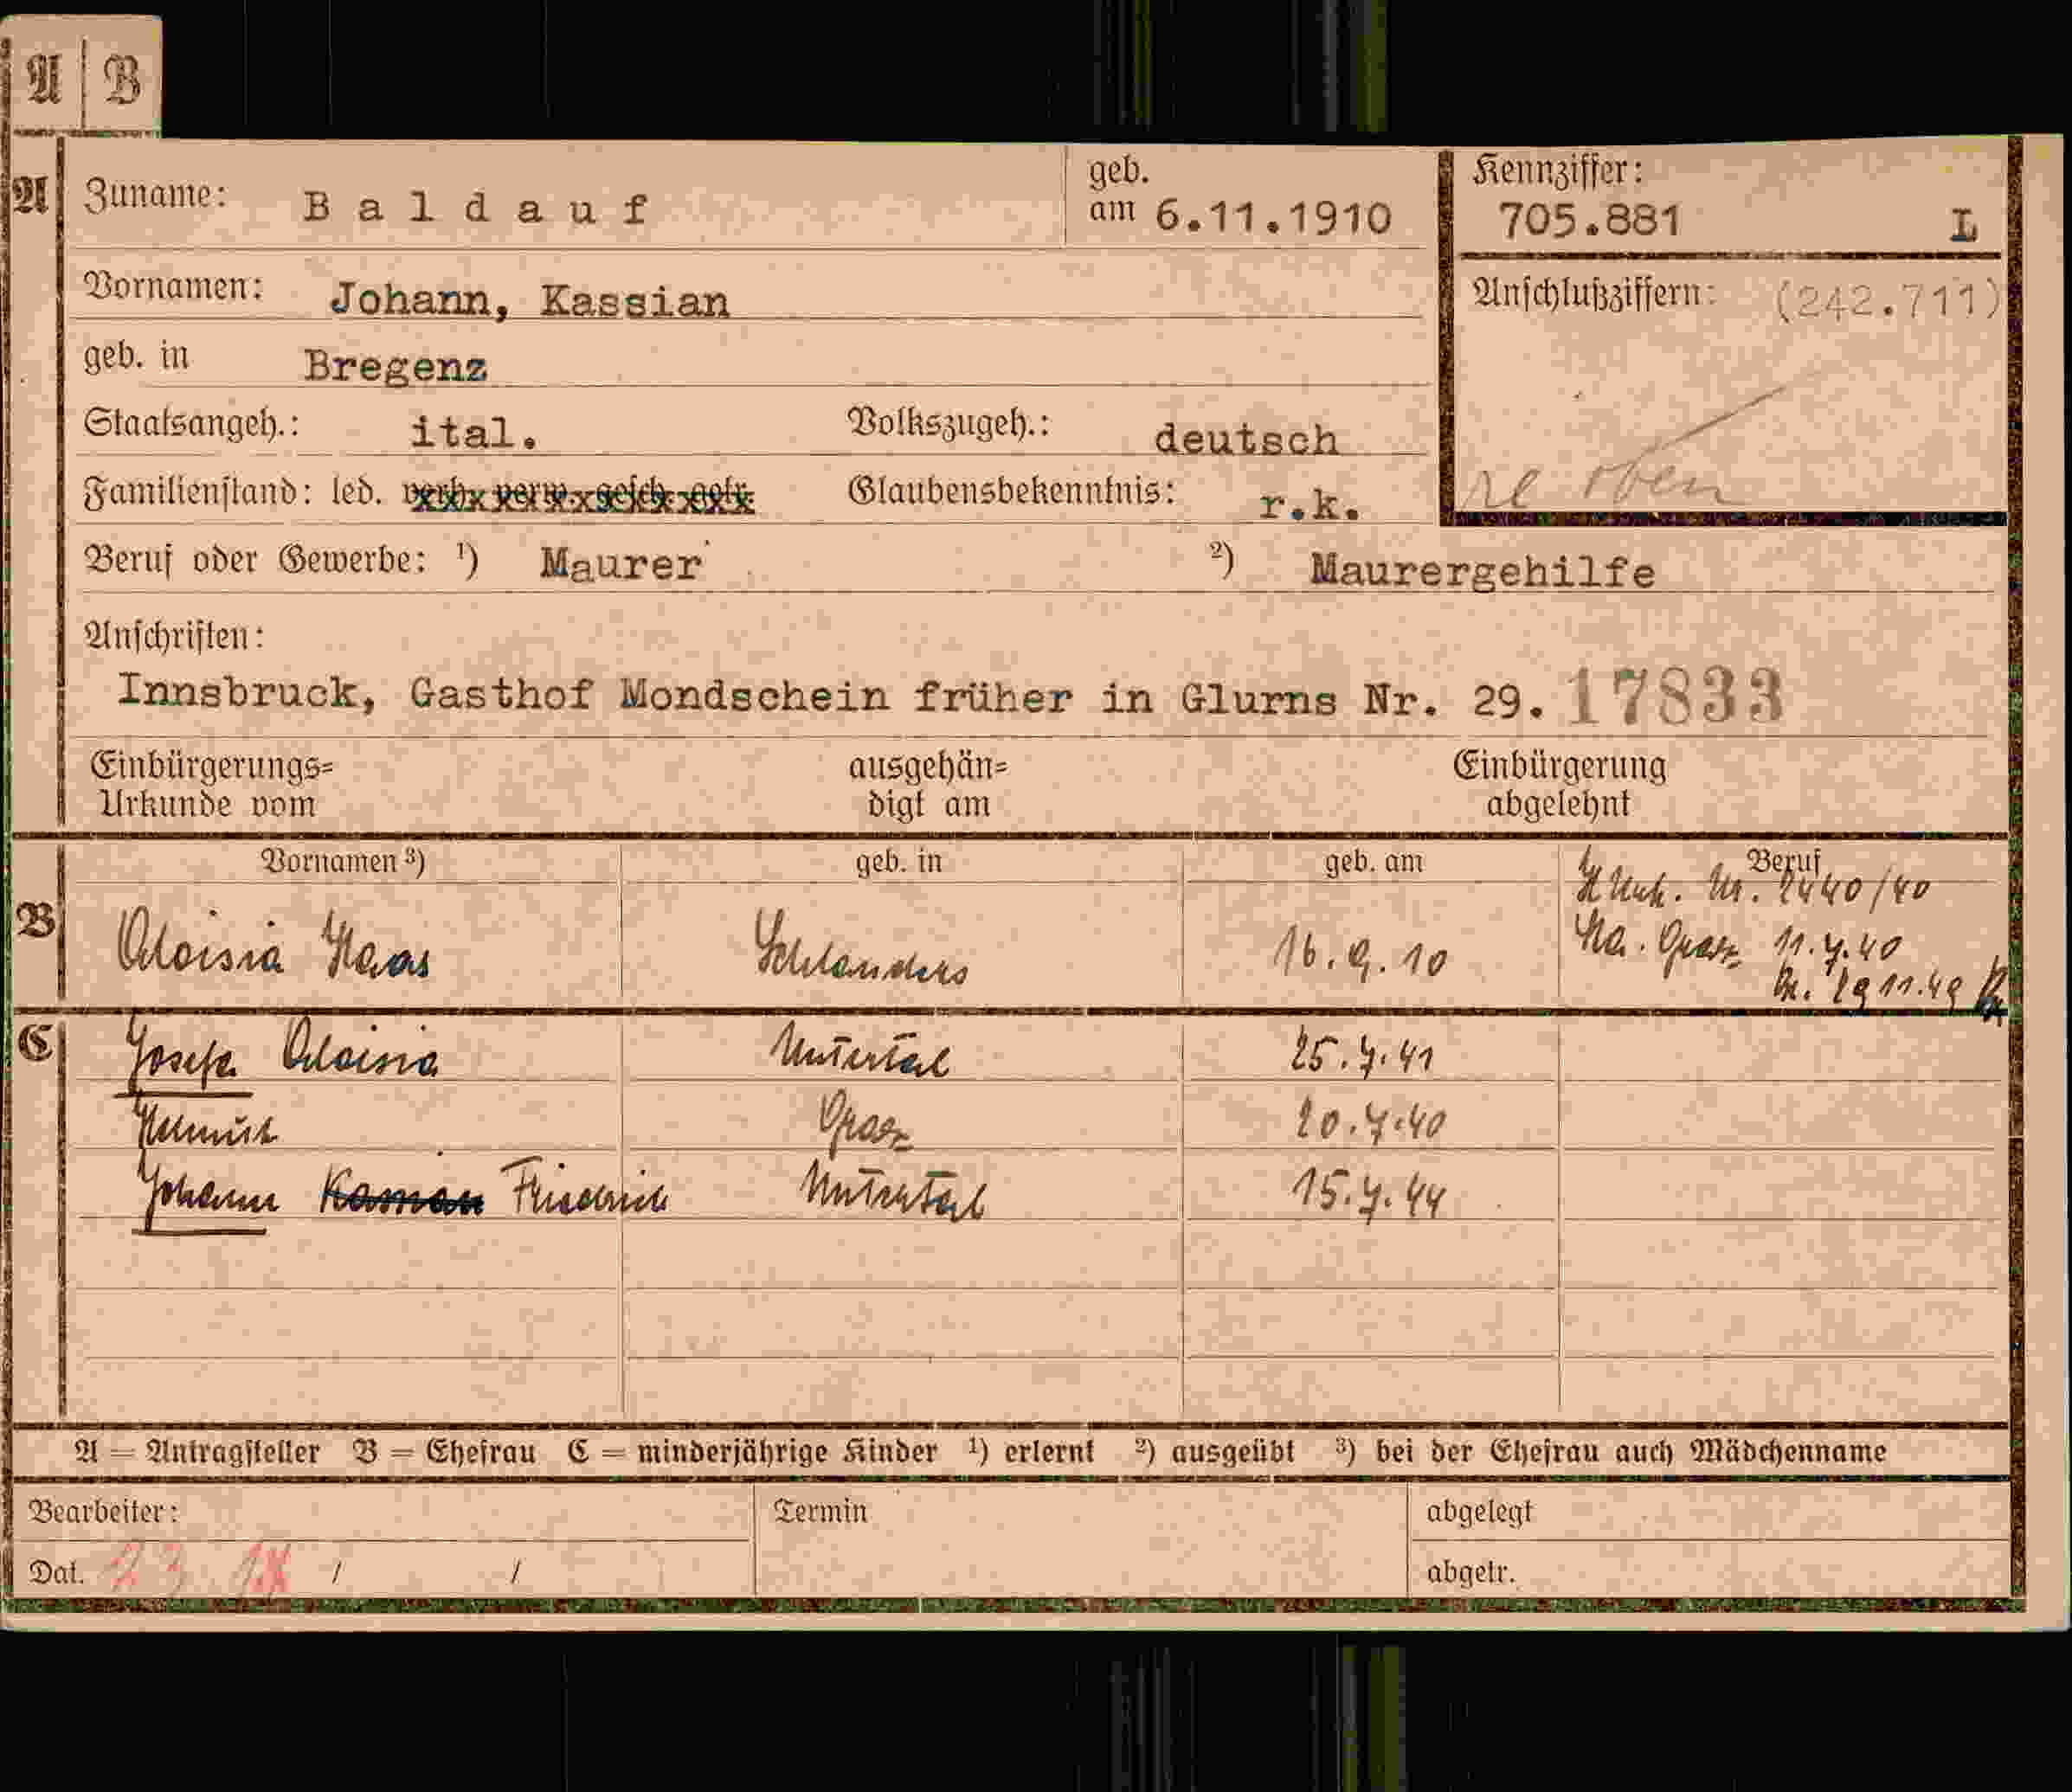 A | B
A
Zuname: Baldauf
geb. am 6.11.1910
Kennziffer: 705.881 L
Vornamen: Johann, Kassian
Anschlußziffern: (242.711)
geb. in Bregenz
Staatsangeh.: ital. Volkszugeh.: deutsch
Familienstand: led. verh. verw. gesch. getr. Glaubensbekenntnis: r.k.
oben
Beruf oder Gewerbe: ¹) Maurer ²) Maurergehilfe
Anschriften:
Innsbruck, Gasthof Mondschein früher in Glurns Nr. 29. 17833
Einbürgerungs=
Urkunde vom
ausgehän=
digt am
Einbürgerung
abgelehnt
B
Vornamen ³) geb. in geb. am Beruf
Nr. 2440/40
Aloisia Haas Schlanders 16.9.10
Graz 11.7.40
29.11.49
C
Josefa Aloisia Untertal 25.7.41
Helmut Graz 20.7.40
Johann Kassian Friedrich Untertal 15.7.44
A = Antragsteller B = Ehefrau C = minderjährige Kinder ¹) erlernt ²) ausgeübt ³) bei der Ehefrau auch Mädchenname
Bearbeiter: Termin abgelegt
Dat. 23 / / abgetr.